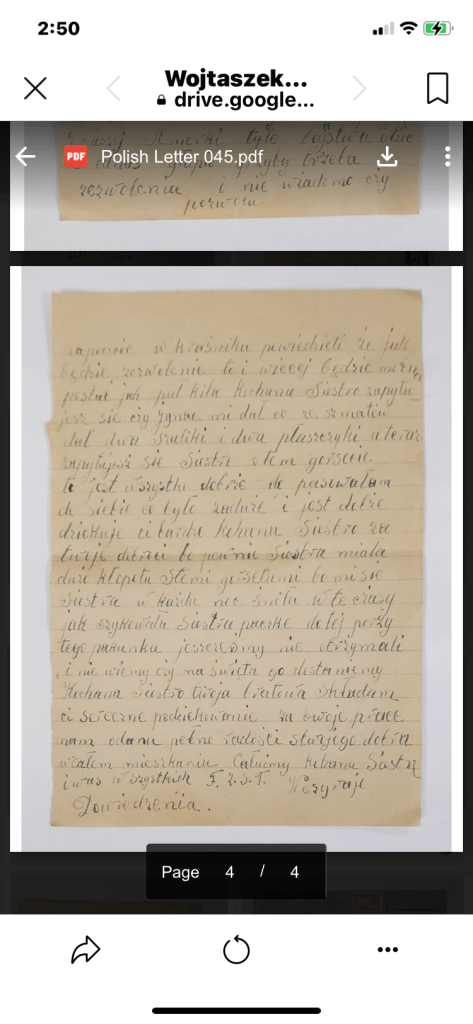 2:50
Wojtaszek...
drive.google...
PDF Polish Letter 045.pdf
tylko
gdyby trzeba
zezwolenia i nie wiadomo czy
w Kraśniku powiedzieli że jak
będzie zezwolenie to i wiecej będzie można
posłać jak puł kila Kochana Siostro zapytu
jesz sie czy Ignac mi dał co ze szmatów
dał dwa szaliki i dwa płaszczyki a teraz
zapytujesz sie Siostro o tem gorsecie
to jest wszystko dobrze do pasowałam
do siebie co było zaduże i jest dobże
dziękuje ci bardzo Kohana Siostro za
twoje dobroci bo pewnie Siostra miała
duże kłopotu stemi gorsetami bo mi sie
Siostra w każdą noc śniła w te czasy
jak szykowała Siostra paczke do tej pory
tego pakunku jeszcześmy nie otrzymali
i nie wiemy czy na święta go dostaniemy
Kochana Siostro twoja bratowa składam
ci serceczne podziekowanie za swoje prace
nam pełne radości dobra
mieszkaniu Całujmy Kohana Siostrę
i was wszystkich
Dowiedzenia.
Page 4 / 4